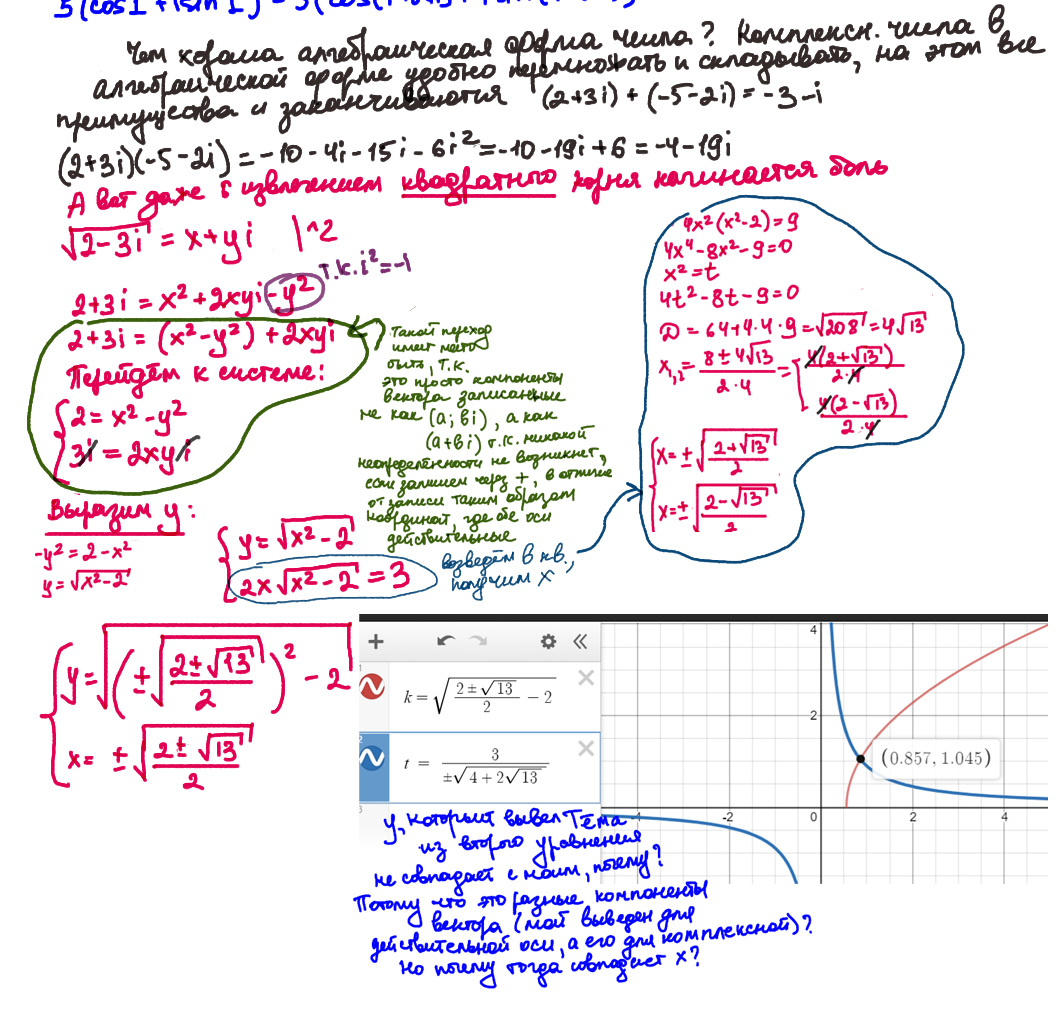 5(cos1 + isin1) = 5(cos(
Чем хороша алгебраическая форма числа? Комплексн. числа в
алгебраической форме удобно перемножать и складывать, на этом все
преимущества и заканчиваются (2+3i) + (-5-2i) = -3-i
(2+3i)(-5-2i) = -10 - 4i - 15i - 6i² = -10 - 19i + 6 = -4 - 19i
А вот даже с извлечением квадратного корня начинается боль
√(2-3i) = x+yi |^2
2+3i = x² + 2xyi - y²
т.к. i² = -1
2+3i = (x² - y²) + 2xyi
Перейдём к системе:
2 = x² - y²
3i = 2xyi
Такой переход
имеет место
быть, т.к.
это просто компоненты
вектора записанные
не как (a; bi), а как
(a+bi) т.к. никакой
неопределённости не возникнет,
если запишем через +, в отличие
от записи таким образом
координат, где обе оси
действительные
Выразим y:
-y² = 2 - x²
y = √(x² - 2)
y = √(x² - 2)
2x√(x² - 2) = 3
возведём в кв.,
получим x
4x²(x² - 2) = 9
4x⁴ - 8x² - 9 = 0
x² = t
4t² - 8t - 9 = 0
D = 64 + 4·4·9 = √208 = 4√13
x₁,₂ = (8 ± 4√13)/(2·4) = 4(2+√13)/(2·4)
4(2-√13)/(2·4)
x = ±√((2+√13)/2)
x = ±√((2-√13)/2)
y = √((±√((2±√13)/2))² - 2)
x = ±√((2±√13)/2)
k = √((2±√13)/2 - 2)
t = 3/(±√(4+2√13))
4
2
(0.857, 1.045)
-4 -2 0 2 4
y, который вывел Тёма
из второго уравнения
не совпадает с моим, почему?
Потому что это разные компоненты
вектора (мой выведен для
действительной оси, а его для комплексной)?
Но почему тогда совпадает x?